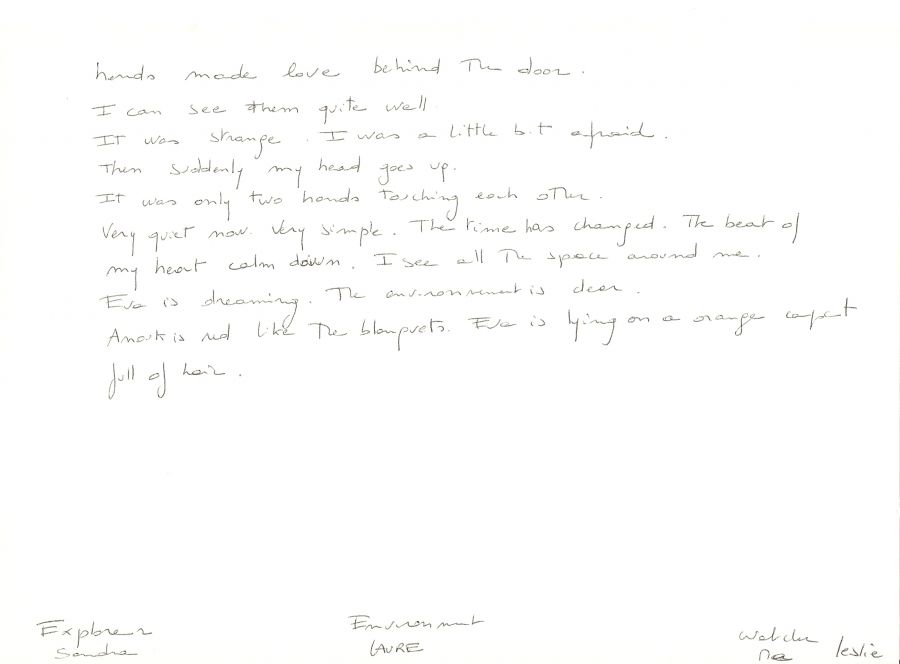 hands made love behind The door.
I can see them quite well.
IT was strange. I was a little bit afraid.
Then suddenly my head goes up.
It was only two hands touching each other.
Very quiet now. Very simple. The time has changed. The beat of
my heart calm down. I see all The space around me.
Eva is dreaming. The environment is clear.
Anouk is red like The blanquets. Eva is lying on a orange carpet
full of hair.
Explorer
Sandra
Environment
LAURE
Watcher
leslie